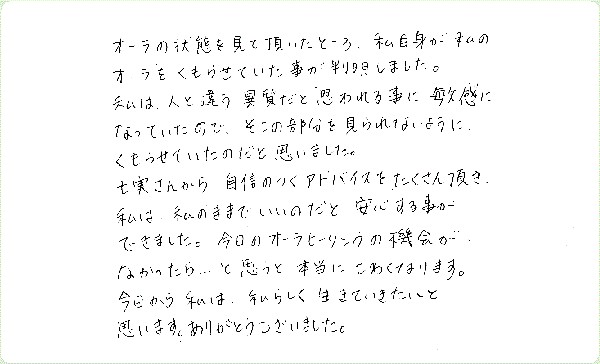 オーラの状態を見て頂いたところ、私自身が私の
オーラをくもらせていた事が判明しました。
私は、人と違う異質だと思われる事に敏感に
なっていたので、そこの部分を見られないように、
くもらせていたのだと思いました。
七実さんから自信のつくアドバイスをたくさん頂き、
私は、私のままでいいのだと安心する事が
できました。今日のオーラヒーリングの機会が
なかったら…と思うと本当にこわくなります。
今日から私は、私らしく生きていきたいと
思います。ありがとうございました。